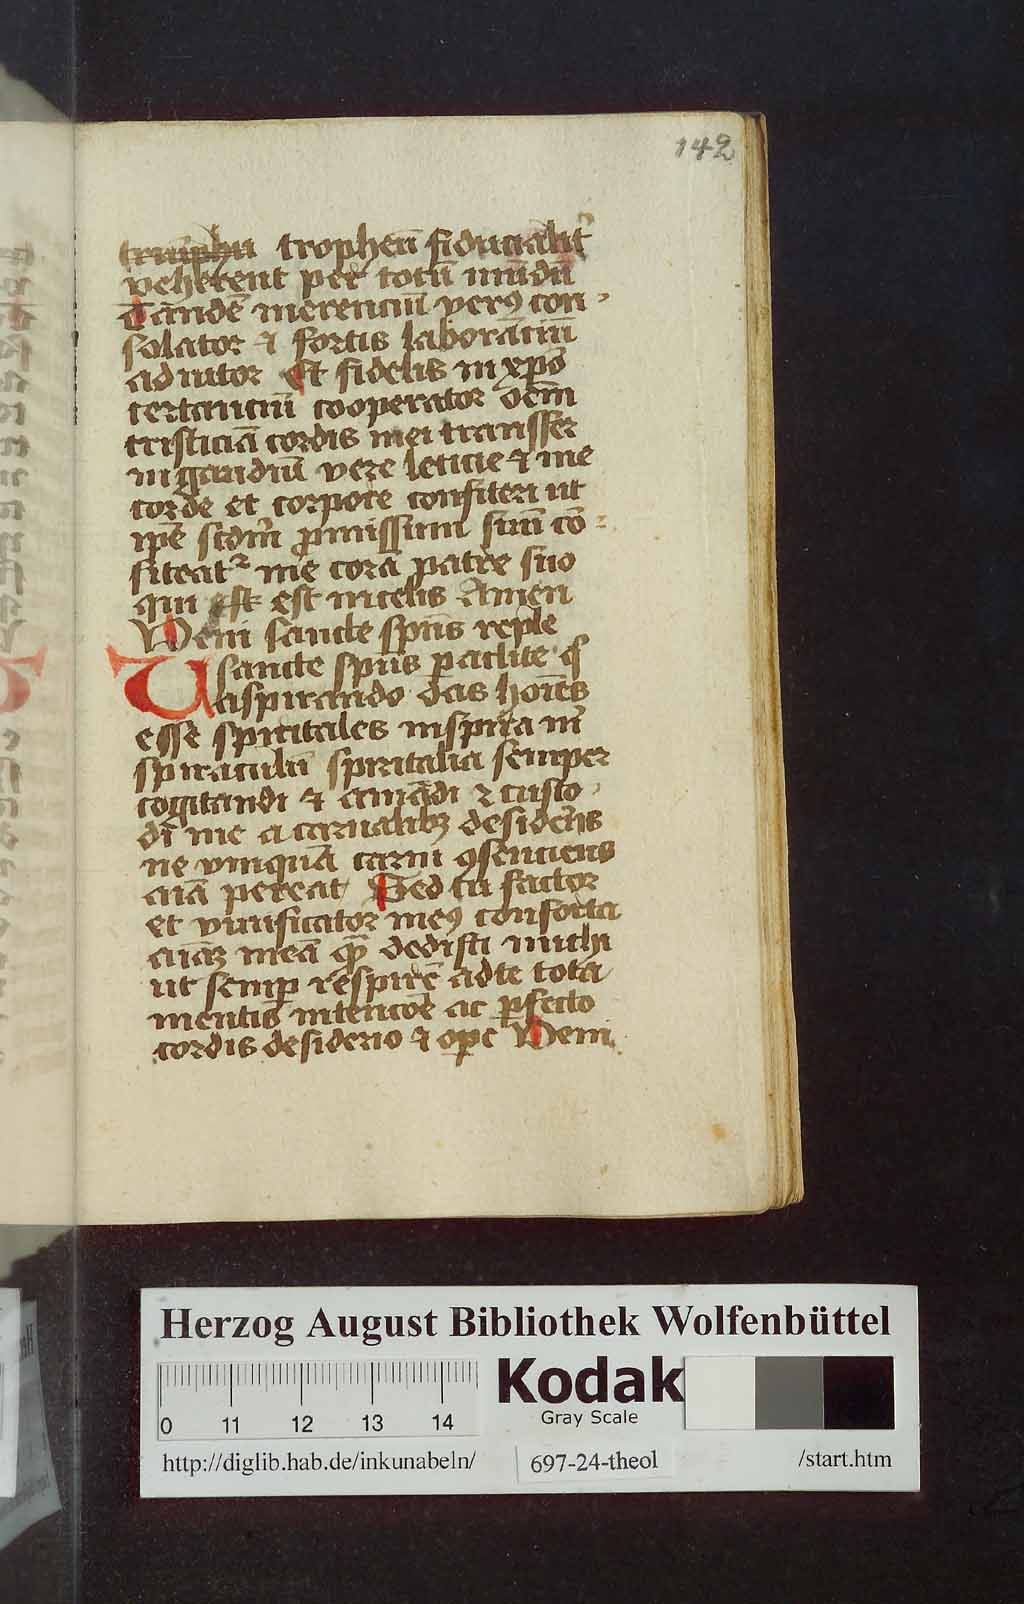 142
triūphū tropheū fiducialit᷑
veherent per totū mūdū
Tandē merenciū verꝯ con
solator ⁊ fortis laborāciū
adiutor Et fidelis in xp̄o
certanciū cooperator oēm
tristiciā cordis mei transfer
in gaudiū vere leticie ⁊ me
corde et corpore confiteri ut
ip̄e scd̄m ꝓmissum suū cō
fiteat᷑ me corā patre suo
qui est est in celis Amen
Veni sancte sp̄us reple
U sancte sp̄us ꝑaclite q̄
aspirando das hoīes
esse spiritales inspira m̄
spiraculū spiritalia semper
cogitandi ⁊ amādi ⁊ custo
di me a carnalibꝫ desiderijs
ne vmquā carni ꝯsenciens
aīa pereat Sed tu factor
et viuificator meꝯ conforta
aīaꝫ meā quā dedisti michi
ut semꝑ respirē ad te tota
mentis intencōe ac ꝑfecto
cordis desiderio ⁊ oꝑe Veni
Herzog August Bibliothek Wolfenbüttel
0 11 12 13 14
Kodak
Gray Scale
http://diglib.hab.de/inkunabeln/ 697-24-theol /start.htm